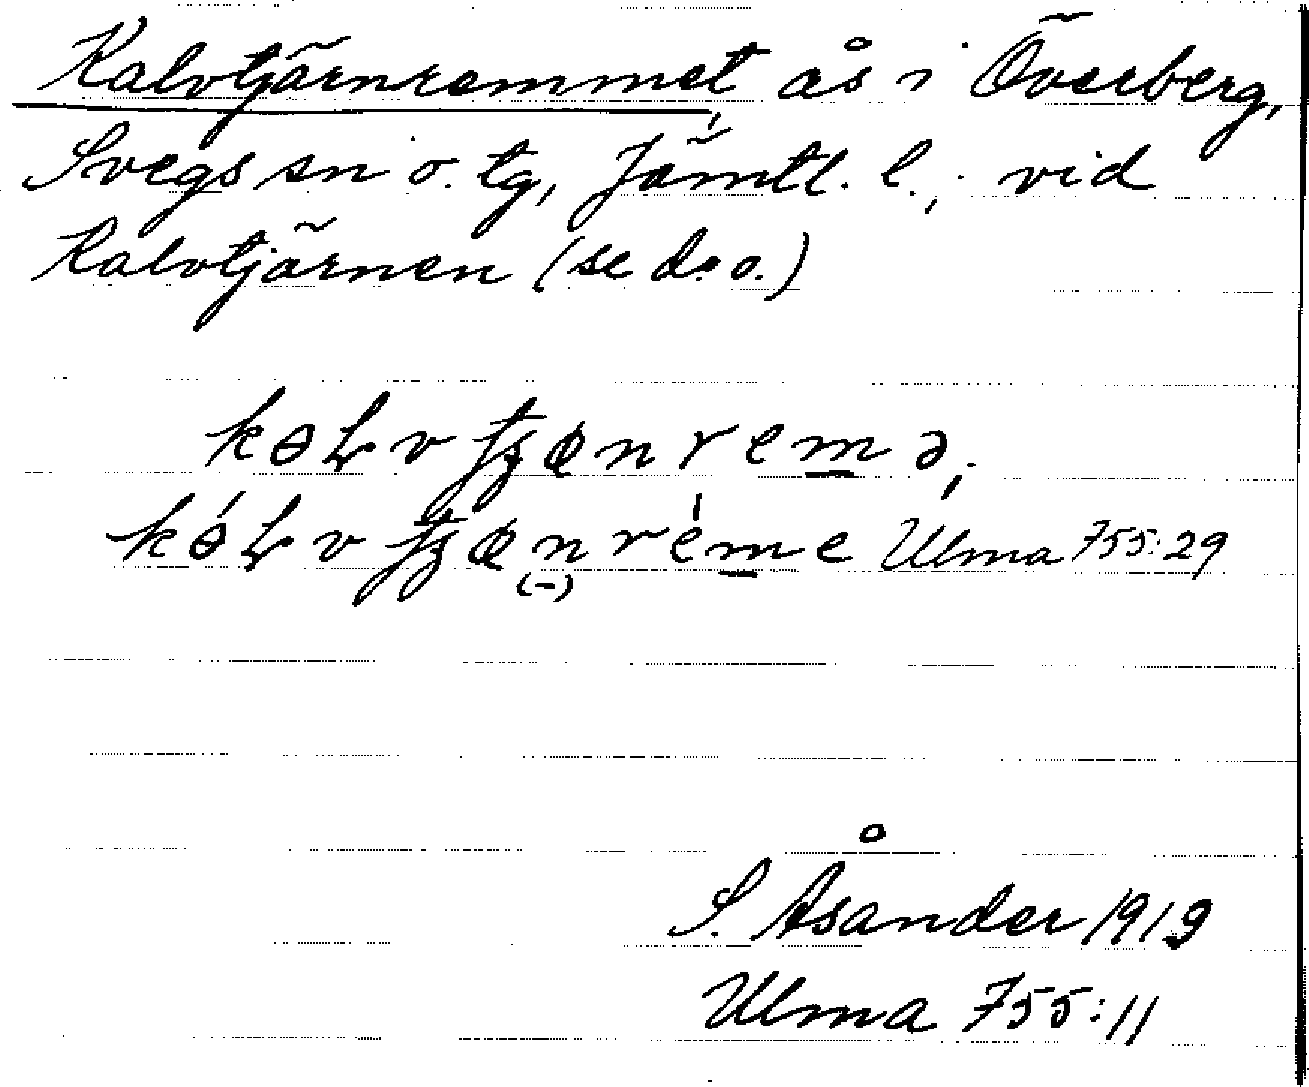 Kalvtjärnremmet, ås i Överberg,
Svegs sn o. tg, Jämtl. l., vid
Kalvtjärnen (se d. o.)
Ulma 755:29
S. Åsander 1919
Ulma 755:11